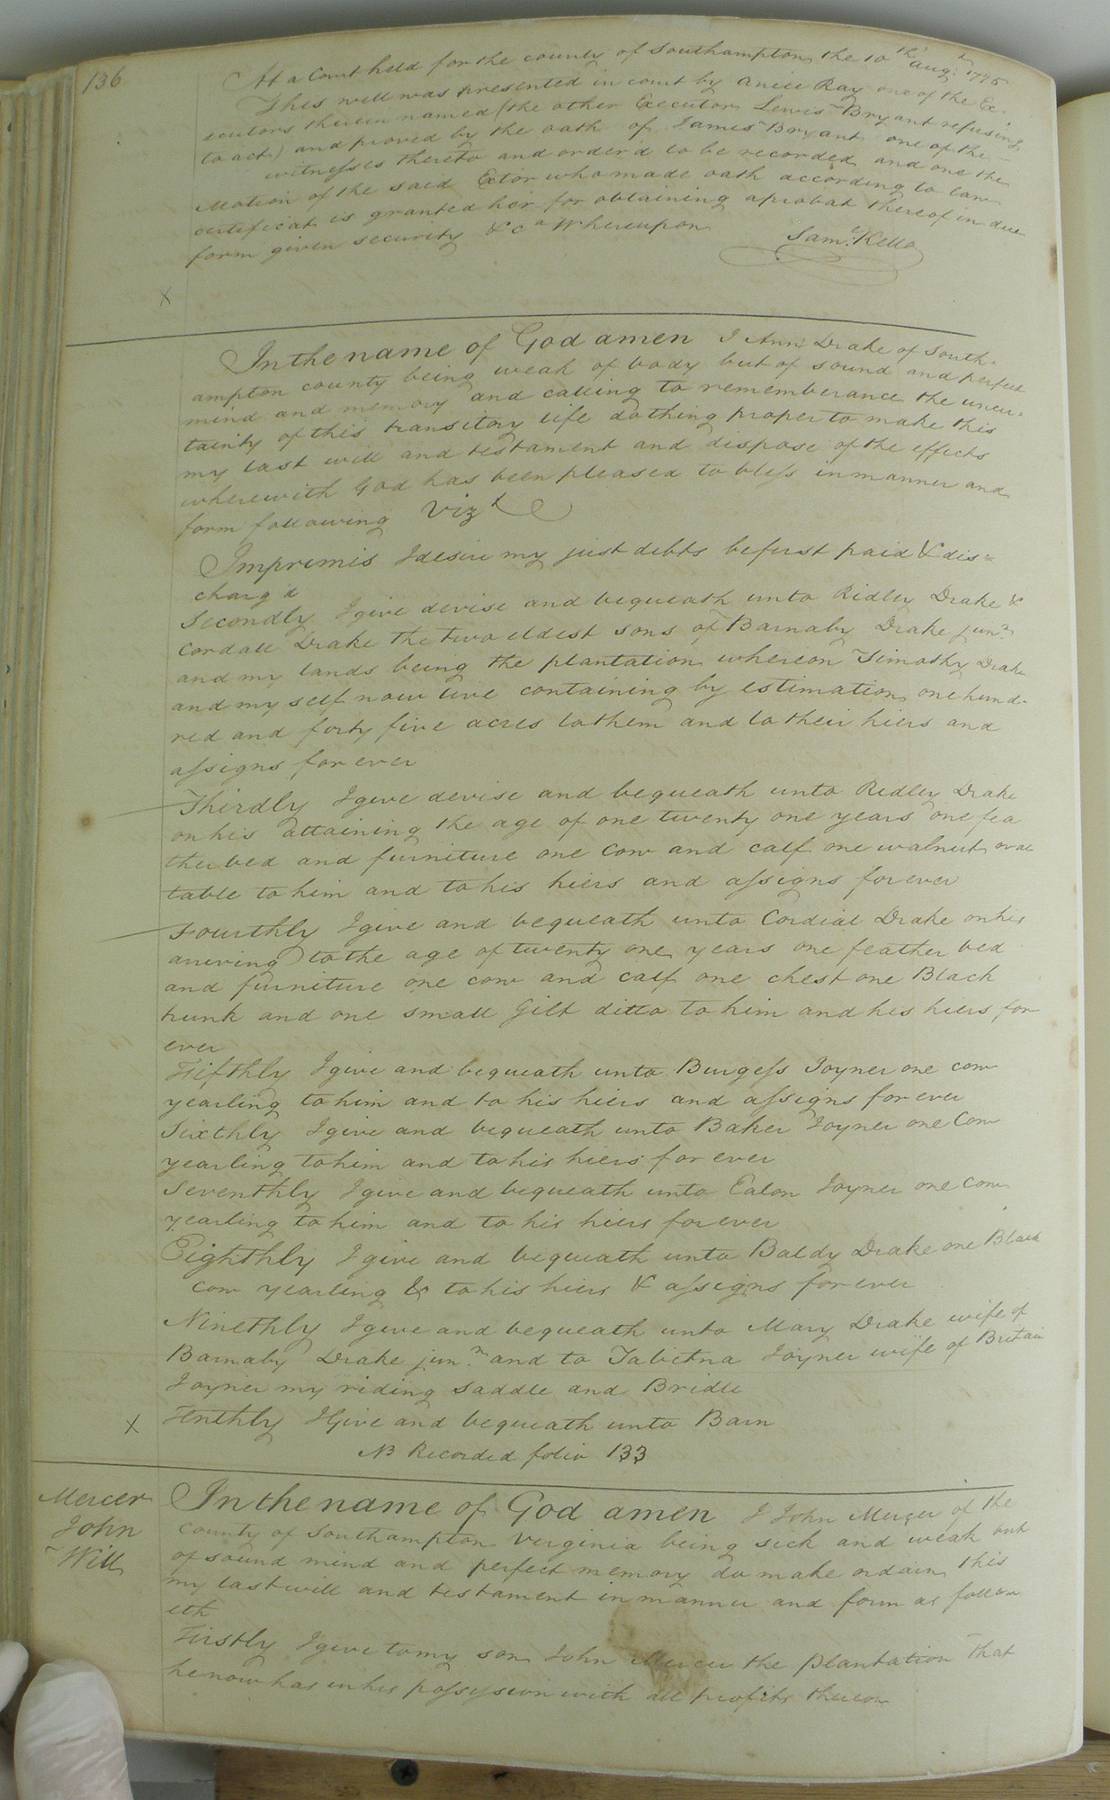 136
At a Court held for the county of Southampton the 10th augt 1775
This will was presented in court by Anice Ray one of the Ex-
ecutors therein named (the other Executor Lewis Bryant refusing
to act) and proved by the oath of James Bryant one of the
witnesses thereto and order'd to be recorded and one the
Motion of the said Extor who made oath according to law
certificat is granted her for obtaining a probat thereof in due
form given security &ca Whereupon
Saml Kello
X
In the name of God amen I Ann Drake of South-
ampton county being weak of body but of sound and perfect
mind and memory and calling to rememberance the uncer-
tainty of this transitory life do thing proper to make this
my last will and testament and dispose of the effects
wherewith God has been pleased to bless in manner and
form following Vizt
Impremis I desire my just debts be first paid & dis=
charg'd
Secondly I give devise and bequeath unto Ridley Drake &
Cordall Drake the two eldest sons of Barnaby Drake junr
and my lands being the plantation whereon Timothy Drake
and my self now live containing by estimation one hund-
red and forty five acres to them and to their hiers and
assigns for ever
Thirdly I give devise and bequeath unto Ridley Drake
on his attaining the age of one twenty one years one fea
ther bed and furniture one cow and calf one walnut oval
table to him and to his hiers and assigns for ever
Fourthly I give and bequeath unto Cordial Drake on his
arriving to the age of twenty one years one feather bed
and furniture one cow and calf one chest one Black
trunk and one small Gilt ditto to him and his hiers for
ever
Fifthly I give and bequeath unto Burgess Joyner one cow
yearling to him and to his hiers and assigns for ever
Sixthly I give and bequeath unto Baker Joyner one Cow
yearling to him and to his hiers for ever
Seventhly I give and bequeath unto Eaton Joyner one Cow
yearling to him and to his hiers for ever
Eighthly I give and bequeath unto Baldy Drake one Black
cow yearling & to his hiers & assigns for ever
Ninethly I give and bequeath unto Mary Drake wife of
Barnaby Drake junr and to Tabitha Joyner wife of Britain
Joyner my riding saddle and Bridle
X Tenthly I Give and bequeath unto Barn
NB Recorded folio 133
Mercer
John
Will
In the name of God amen I John Mercer of the
County of Southampton Virginia being sick and weak but
of sound mind and perfect memory do make ordain this
my last will and testament in manner and form as follow
eth
Firstly I give to my son John Mercer the plantation That
he now has in his possession with all profits thereon